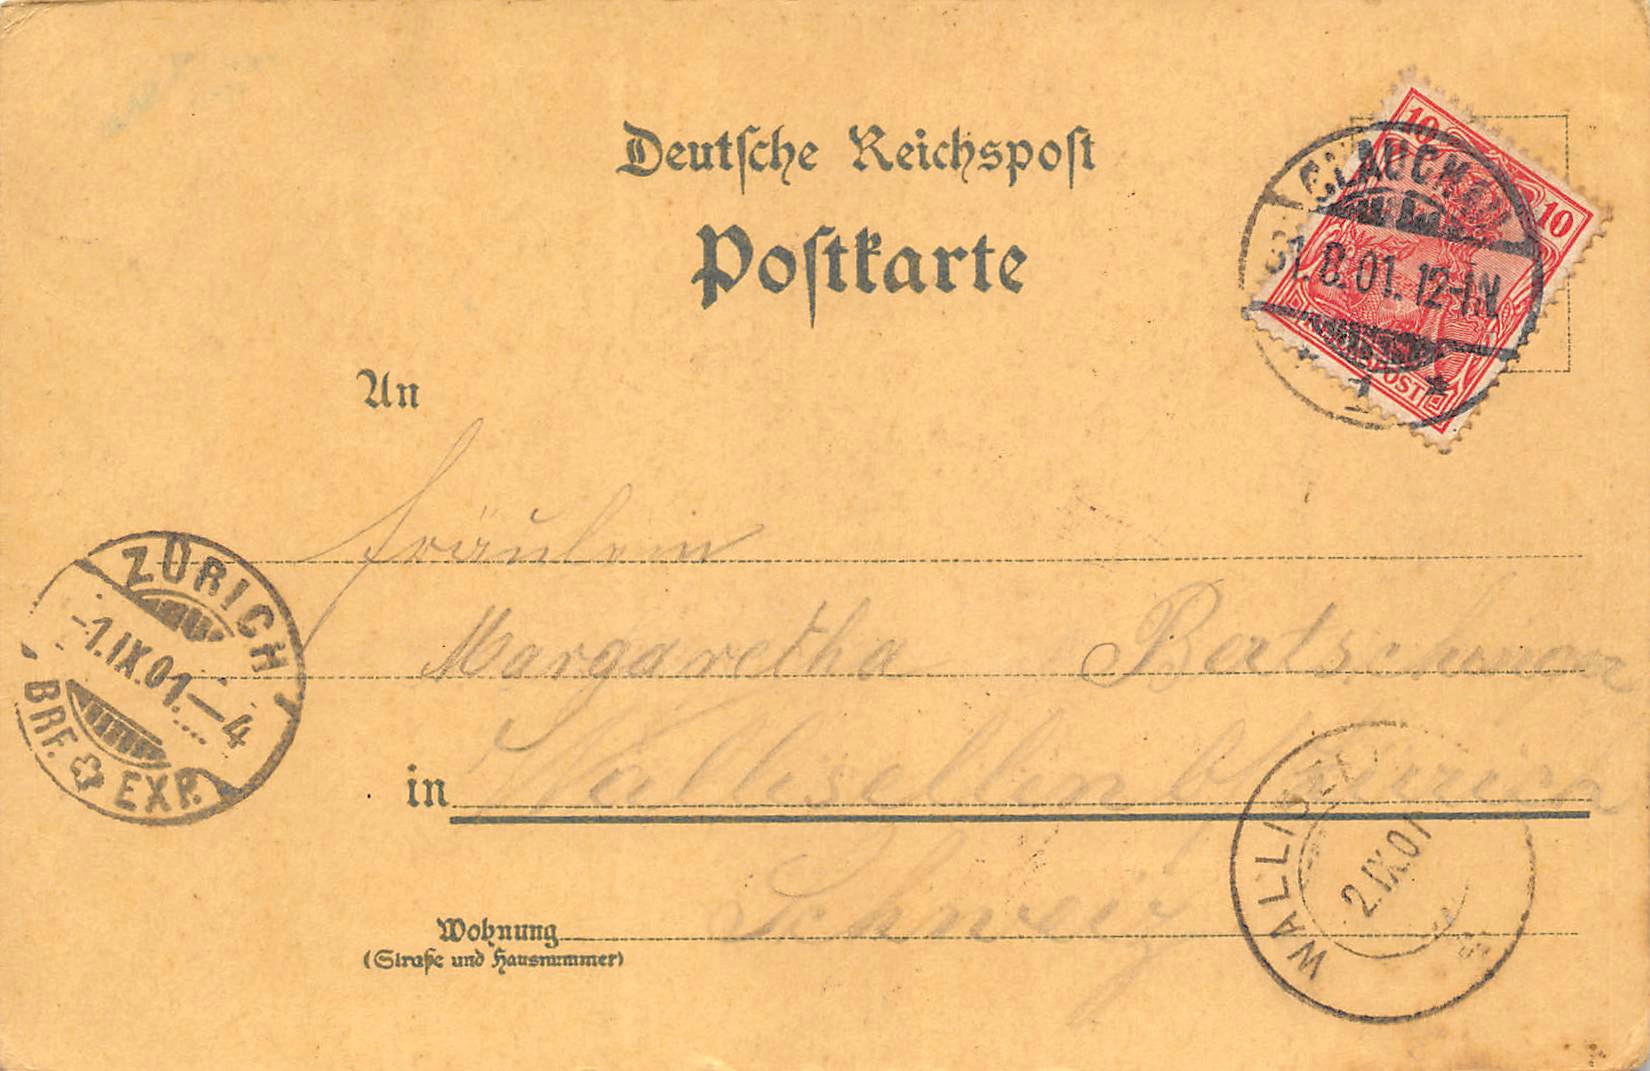 Deutsche Reichspost
Postkarte
10
10
REICHSPOST
GLAUCHAU
31.8.01.12-1.N.
1
An
Fräulein
Margaretha Bertschinger
in Wallisellen b/Zürich
Schweiz
Wohnung
(Straße und Hausnummer)
ZÜRICH
-1.IX.01.-4
BRF. EXP.
WALLISELLEN
2.IX.01